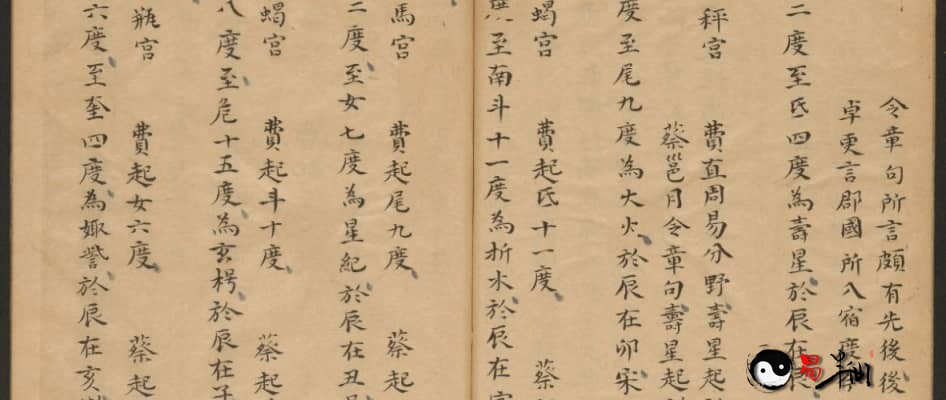 令章句所言頗有先後後
卓更言郡國所入宿度
二度至氐四度為壽星於辰在
秤宮　費直周易分野壽星起
蔡邕月令章句壽星起
度至尾九度為大火於辰在卯宋
蝎宮　費起氐十一度　蔡
至南斗十一度為析木於辰在
馬宮　費起尾九度　蔡起
二度至女七度為星紀於辰在丑
蝎宮　費起斗十度　蔡起
八度至危十五度為玄枵於辰在子
瓶宮　費起女六度　蔡起
六度至奎四度為娵訾於辰在亥
易